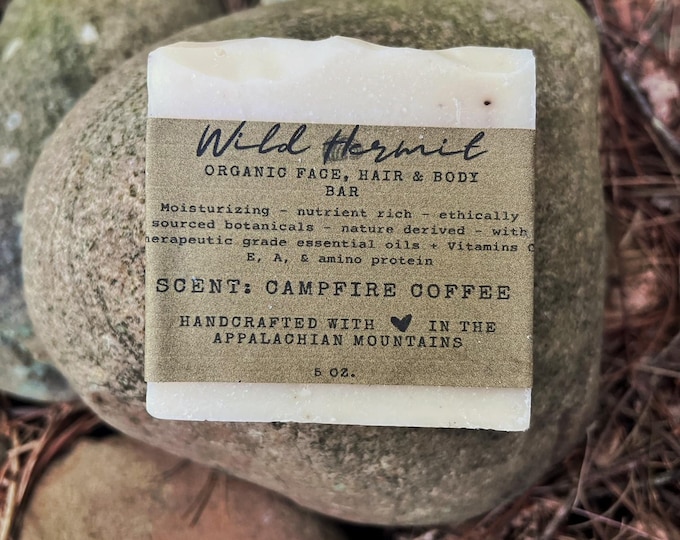 Wild Hermit
ORGANIC FACE, HAIR & BODY
BAR
Moisturizing - nutrient rich - ethically
sourced botanicals - nature derived - with
herapeutic grade essential oils + Vitamins C
E, A, & amino protein
SCENT: CAMPFIRE COFFEE
HANDCRAFTED WITH ♥ IN THE
APPALACHIAN MOUNTAINS
5 OZ.